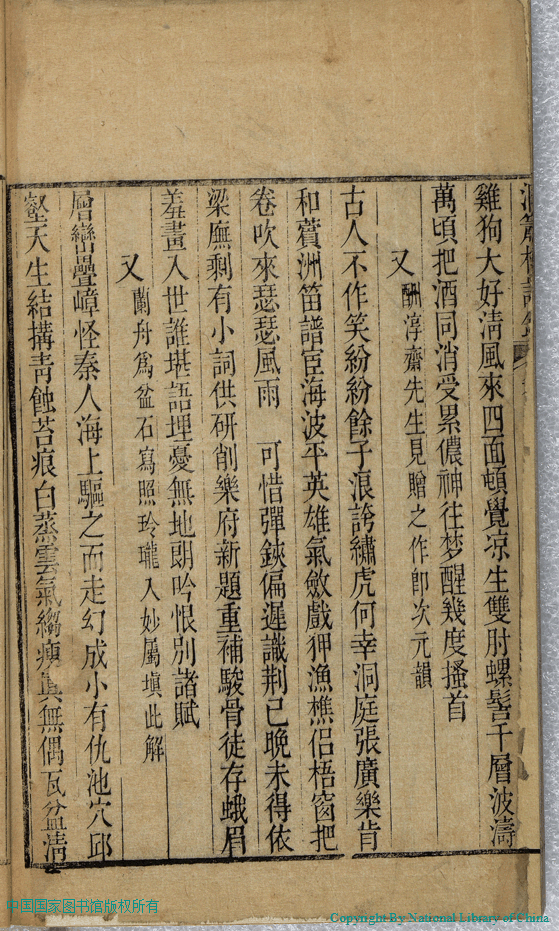 雞狗大好淸風來四面頓覺凉生雙肘螺髻千層波濤
萬頃把酒同消受累儂神往梦醒幾度搔首
又酬淳齋先生見贈之作卽次元韻
古人不作笑紛紛餘子浪誇繡虎何幸洞庭張廣樂肯
和薲洲笛譜宦海波平英雄氣斂戲狎漁樵侶梧窗把
卷吹來瑟瑟風雨　可惜彈鋏偏遲識荆已晚未得依
梁廡剩有小詞供研削樂府新題重補駿骨徒存蛾眉
羞畫入世誰堪語埋憂無地朗吟恨別諸賦
又蘭舟爲盆石寫照玲瓏入妙屬塡此解
層巒疊嶂怪秦人海上驅之而走幻成小有仇池穴邱
壑天生結搆靑蝕苔痕白蒸雲氣縐瘦眞無偶瓦盆淸
中国国家图书馆版权所有
Copyright By National Library of China.